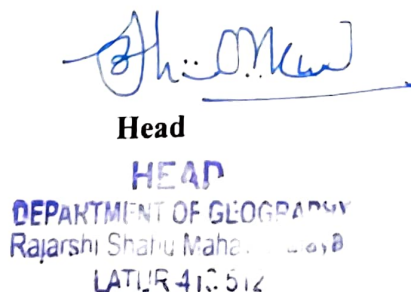 Head
HEAD
DEPARTMENT OF GEOGRAPHY
Rajarshi Shahu
LATUR 413 512